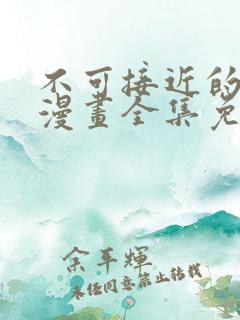 不可接近的
漫畫全集免
余年輝
未經同意禁止轉載